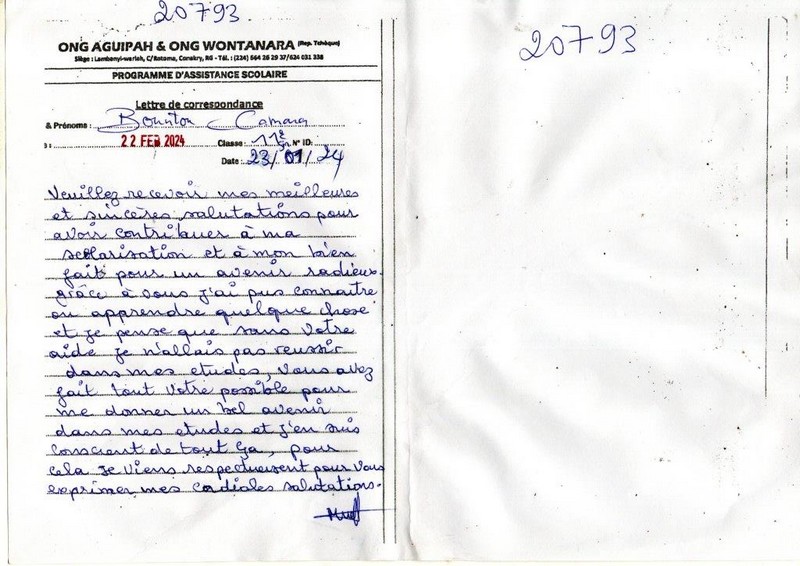 20793.
20793
ONG AGUIPAH & ONG WONTANARA (Rep. Tchèque)
Siège : Lambanyi-wariah, C/Ratoma, Conakry, RG - Tél. : (224) 664 26 29 37/624 031 338
PROGRAMME D'ASSISTANCE SCOLAIRE
Lettre de correspondance
& Prénoms : Camara
22 FEB 2024 Classe : 11e N° ID:
Date : 23/01/24
Veuillez recevoir mes meilleures
et sincères salutations pour
avoir contribuer à ma
scolarisation et à mon bien
fait pour un avenir radieux.
grâce à vous j'ai pus connaitre
ou apprendre quelque chose
et je pense que sans votre
aide je n'allais pas reussir
dans mes etudes, vous avez
fait tout votre possible pour
me donner un bel avenir
dans mes etudes et j'en suis
conscient de tout ça, pour
cela je viens respectueisent pour vous
exprimer mes cordiales salutations.